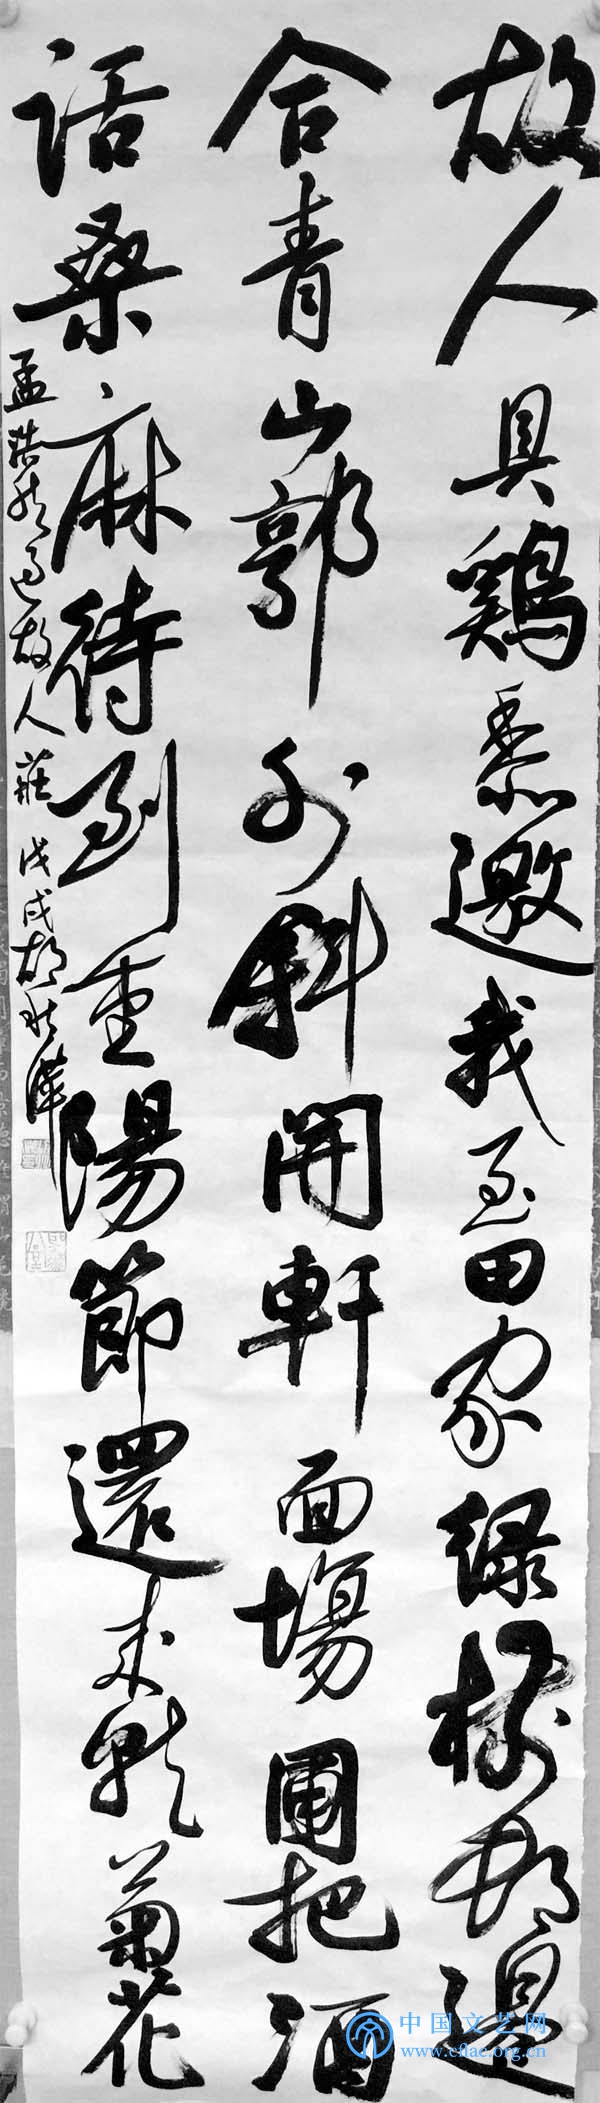 故人具鷄黍邀我至田家绿樹邨邊
合青山郭外斜開軒面場圃把酒
話桑麻待到重陽節還来就菊花
孟浩然過故人莊 戊戌胡秋萍
中国文艺网
www.cflac.org.cn